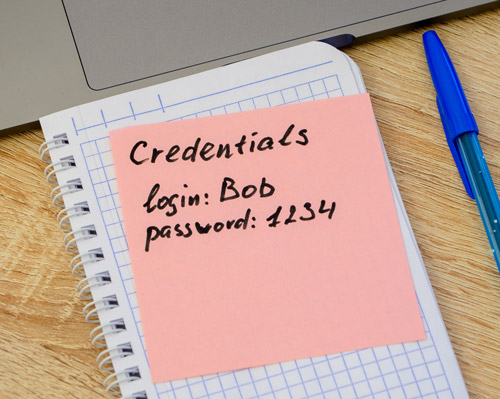 Credentials
login: Bob
password: 1234